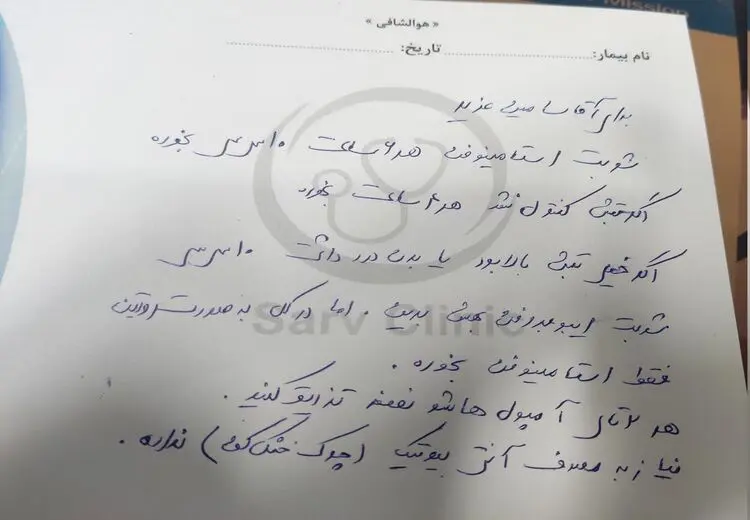 Mission
« هوالشافی »
نام بیمار: .......... تاریخ: ..........
برای آقا سامین عزیز
شربت استامینوفن هر ۶ ساعت ۱۰ سی سی بخوره
اگه تبش کنترل نشد هر ۴ ساعت بخوره
اگه خیلی تبش بالا بود یا بدن درد داشت ۱۰ سی سی
شربت ایبوبروفن بهش بدین. اما در کل به صورت روتین
فقط استامینوفن بخوره.
هر ۲ تای آمپول هاشو نصفه تزریق کنید.
نیاز به مصرف آنتی بیوتیک (چرک خشک کن) نداره.
Sarv Clinic